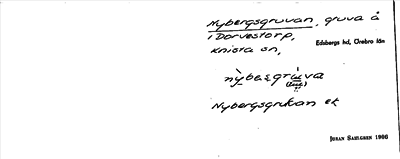 Nybergsgruvan, gruva å
i Dorvestorp,
Knista sn,
Edsbergs hd, Örebro län
Nybergsgruvan ek
JORAN SAHLGREN 1906